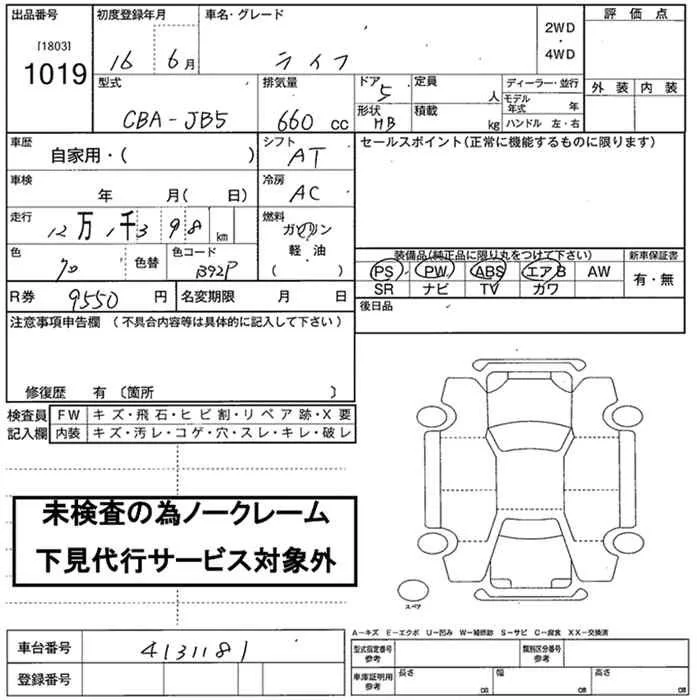 出品番号 初度登録年月 車名・グレード 評価点
[1803]
1019
16 6月 ライフ
2WD
・
4WD
型式 排気量 ドア 定員 ディーラー・並行 外装 内装
5 人 モデル年式 年
CBA-JB5 660cc 形状 HB 積載 kg ハンドル 左・右
車歴 自家用・( ) シフト AT セールスポイント(正常に機能するものに限ります)
車検 年 月( 日) 冷房 AC
走行 12万1千398km 燃料 ガソリン
軽油
( )
色 色替 色コード B92P
装備品(純正品に限り丸をつけて下さい) 新車保証書
PS PW ABS エアB AW 有・無
SR ナビ TV カワ
R券 9550円 名変期限 月 日 後日品
注意事項申告欄 (不具合内容等は具体的に記入して下さい)
修復歴 有 〔箇所 〕
検査員 FW キズ・飛石・ヒビ割・リペア跡・X要
記入欄 内装 キズ・汚レ・コゲ・穴・スレ・キレ・破レ
未検査の為ノークレーム
下見代行サービス対象外
スペア
A-キズ E-エクボ U-凹み W-補修跡 S-サビ C-腐食 XX-交換済
車台番号 4131181 型式指定番号 参考 類別区分番号 参考
登録番号 車庫証明用 参考 長さ cm 幅 cm 高さ cm